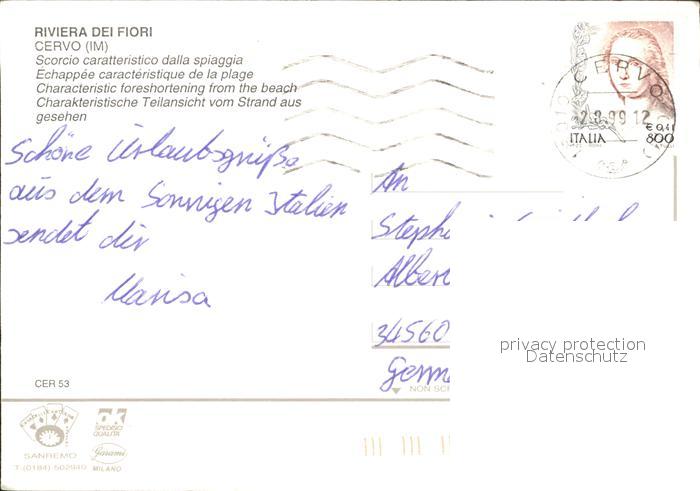 RIVIERA DEI FIORI
CERVO (IM)
Scorcio caratteristico dalla spiaggia
Échappée caractéristique de la plage
Characteristic foreshortening from the beach
Charakteristische Teilansicht vom Strand aus
gesehen
CERVO
2.8.99 12
€ 0,41
ITALIA 800
Schöne Urlaubsgrüße
aus dem Sonnigen Italien
sendet dir
Marisa
An
Steph
Alber
34560
Germ
privacy protection
Datenschutz
CER 53
NON SCR
SPEDISCI
QUALITA'
Garami
SANREMO
T.(0184) 502940
MILANO